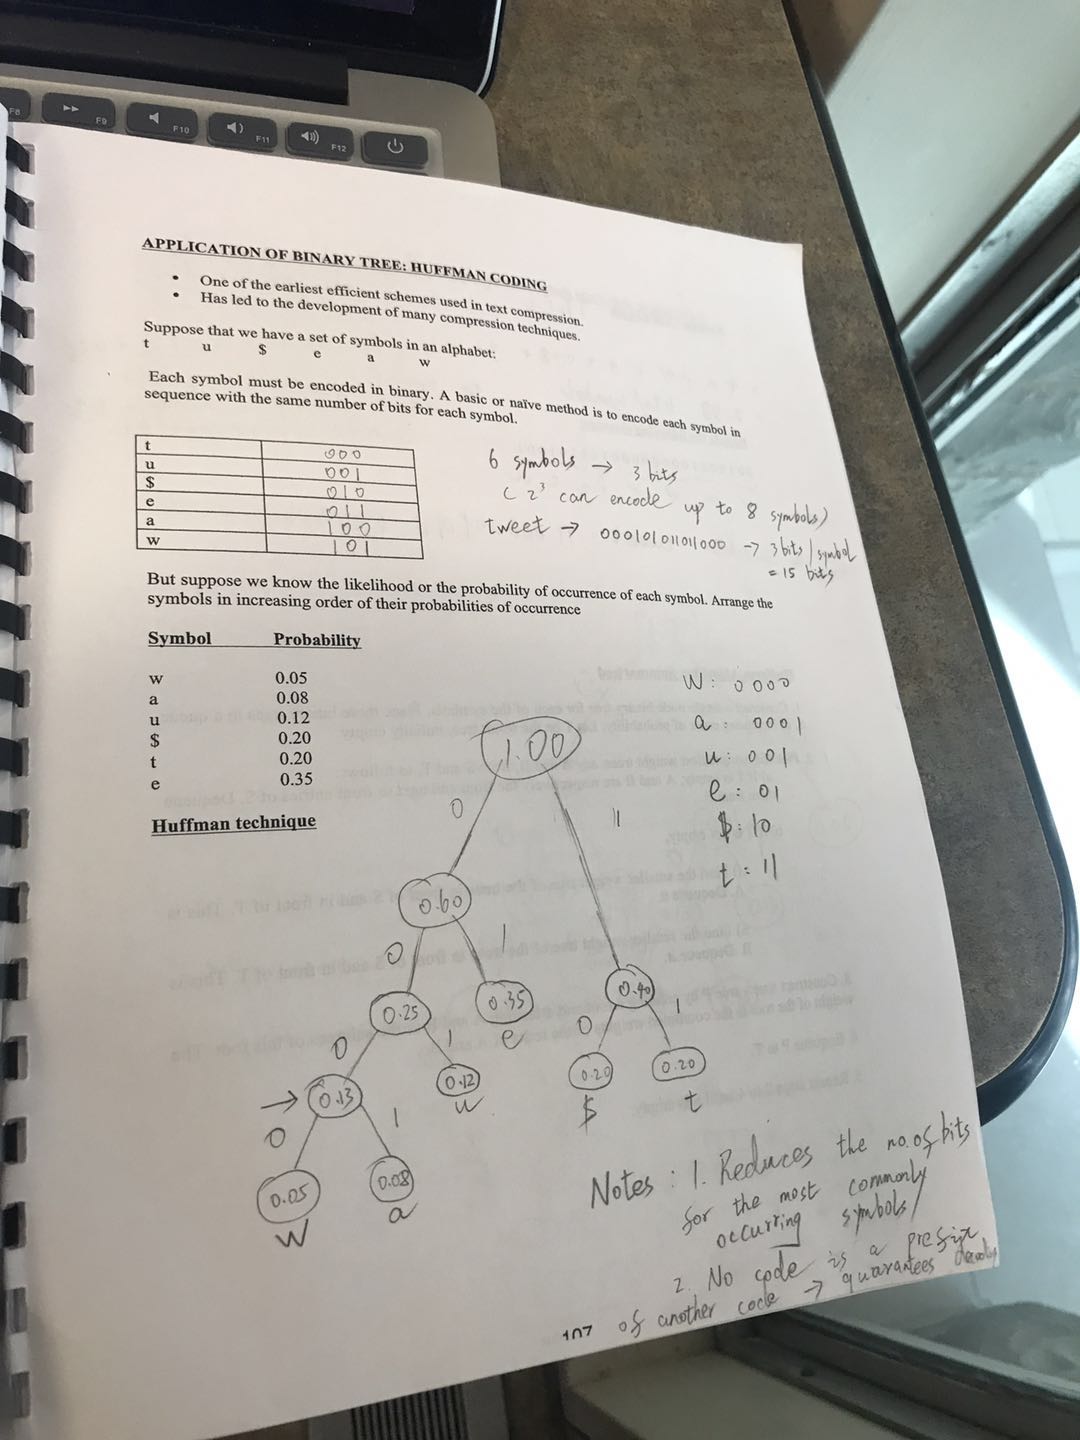 F8
F9
F10
F11
F12
APPLICATION OF BINARY TREE: HUFFMAN CODING
• One of the earliest efficient schemes used in text compression.
• Has led to the development of many compression techniques.
Suppose that we have a set of symbols in an alphabet:
t u $ e a w
Each symbol must be encoded in binary. A basic or naïve method is to encode each symbol in
sequence with the same number of bits for each symbol.
t 000
u 001
$ 010
e 011
a 100
w 101
6 symbols → 3 bits
( 2³ can encode up to 8 symbols)
tweet → 000101011011000 → 3 bits / symbol
= 15 bits
But suppose we know the likelihood or the probability of occurrence of each symbol. Arrange the
symbols in increasing order of their probabilities of occurrence
Symbol Probability
w 0.05
a 0.08
u 0.12
$ 0.20
t 0.20
e 0.35
W: 0000
a: 0001
u: 001
e: 01
$: 10
t: 11
Huffman technique
1.00
0 1
0.60
0 1
0.25 0.35 0.40
e
0 1 0 1
0.13 0.12 0.20 0.20
u $ t
→
0 1
0.05 0.08
W a
Notes: 1. Reduces the no. of bits
for the most commonly
occurring symbols
2. No code is a prefix
of another code → guarantees
107